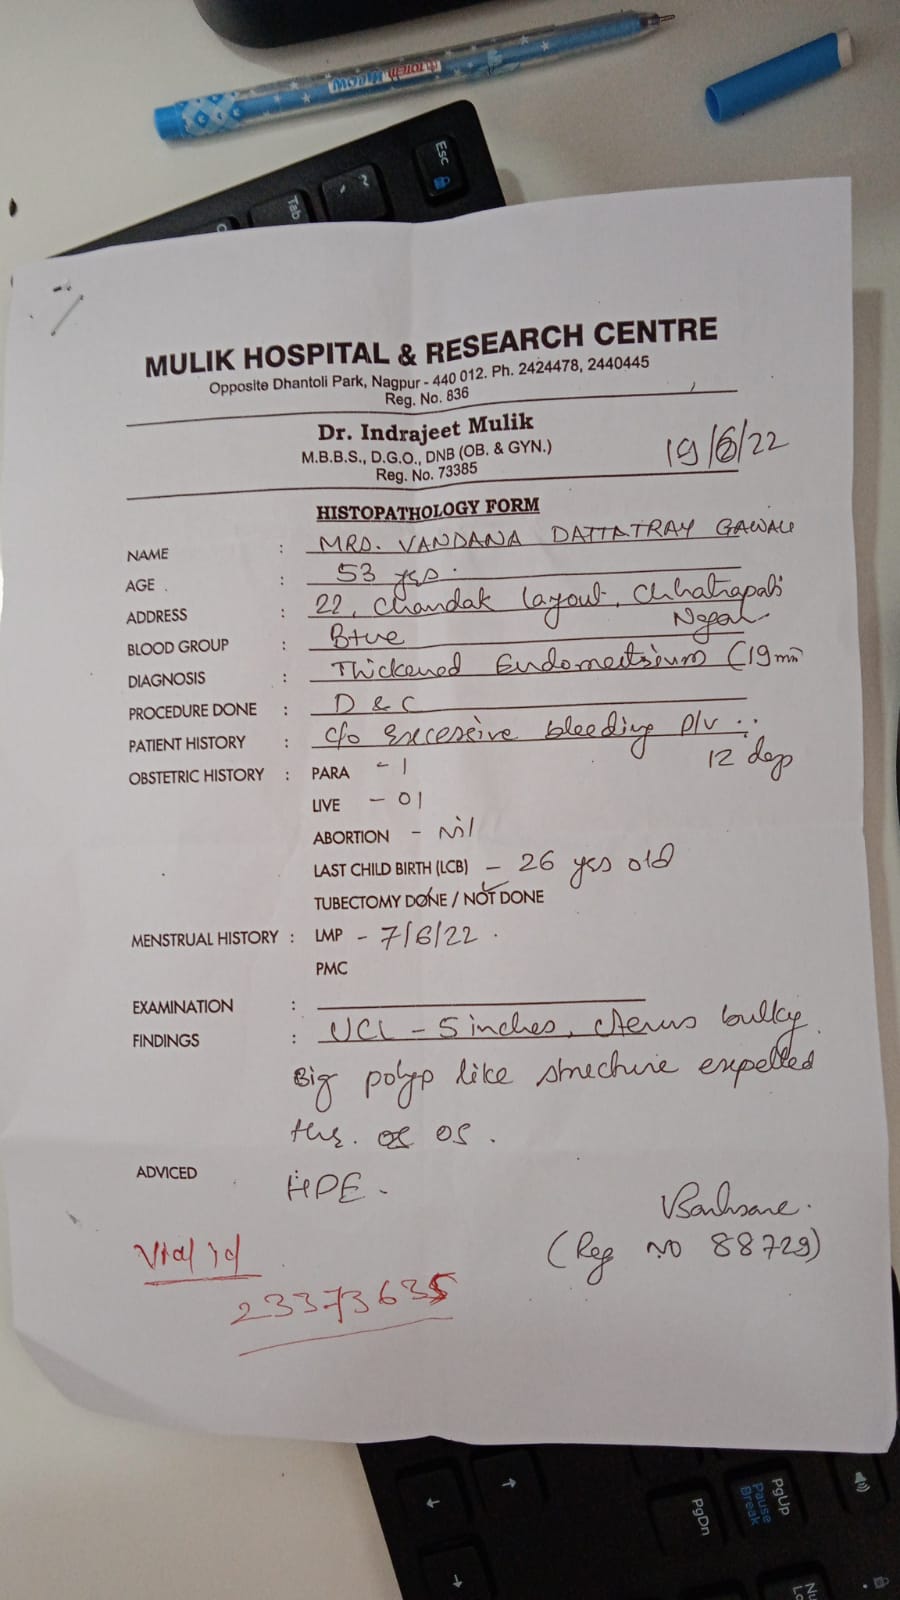 MULIK HOSPITAL & RESEARCH CENTRE
Opposite Dhantoli Park, Nagpur - 440 012. Ph. 2424478, 2440445
Reg. No. 836
Dr. Indrajeet Mulik
M.B.B.S., D.G.O., DNB (OB. & GYN.)
Reg. No. 73385
19/6/22
HISTOPATHOLOGY FORM
NAME : MRS. VANDANA DATTATRAY GAWALI
AGE : 53 yrs.
ADDRESS : 22, Chandak layout, Chhatrapati
Nagar
BLOOD GROUP : B+ve
DIAGNOSIS : Thickened Endometrium (19mm
PROCEDURE DONE : D & C
PATIENT HISTORY : c/o excessive bleeding p/v
12 days
OBSTETRIC HISTORY : PARA - 1
LIVE - 01
ABORTION - Nil
LAST CHILD BIRTH (LCB) - 26 yrs old
TUBECTOMY DONE / NOT DONE
MENSTRUAL HISTORY : LMP - 7/6/22.
PMC
EXAMINATION :
FINDINGS : UCL - 5 inches, uterus bulky
Big polyp like structure expelled
thr. os.
ADVICED HPE.
(Reg NO 88729)
Vial id
23373635
Esc
Tab
~
PgUp
Pause
Break
PgDn